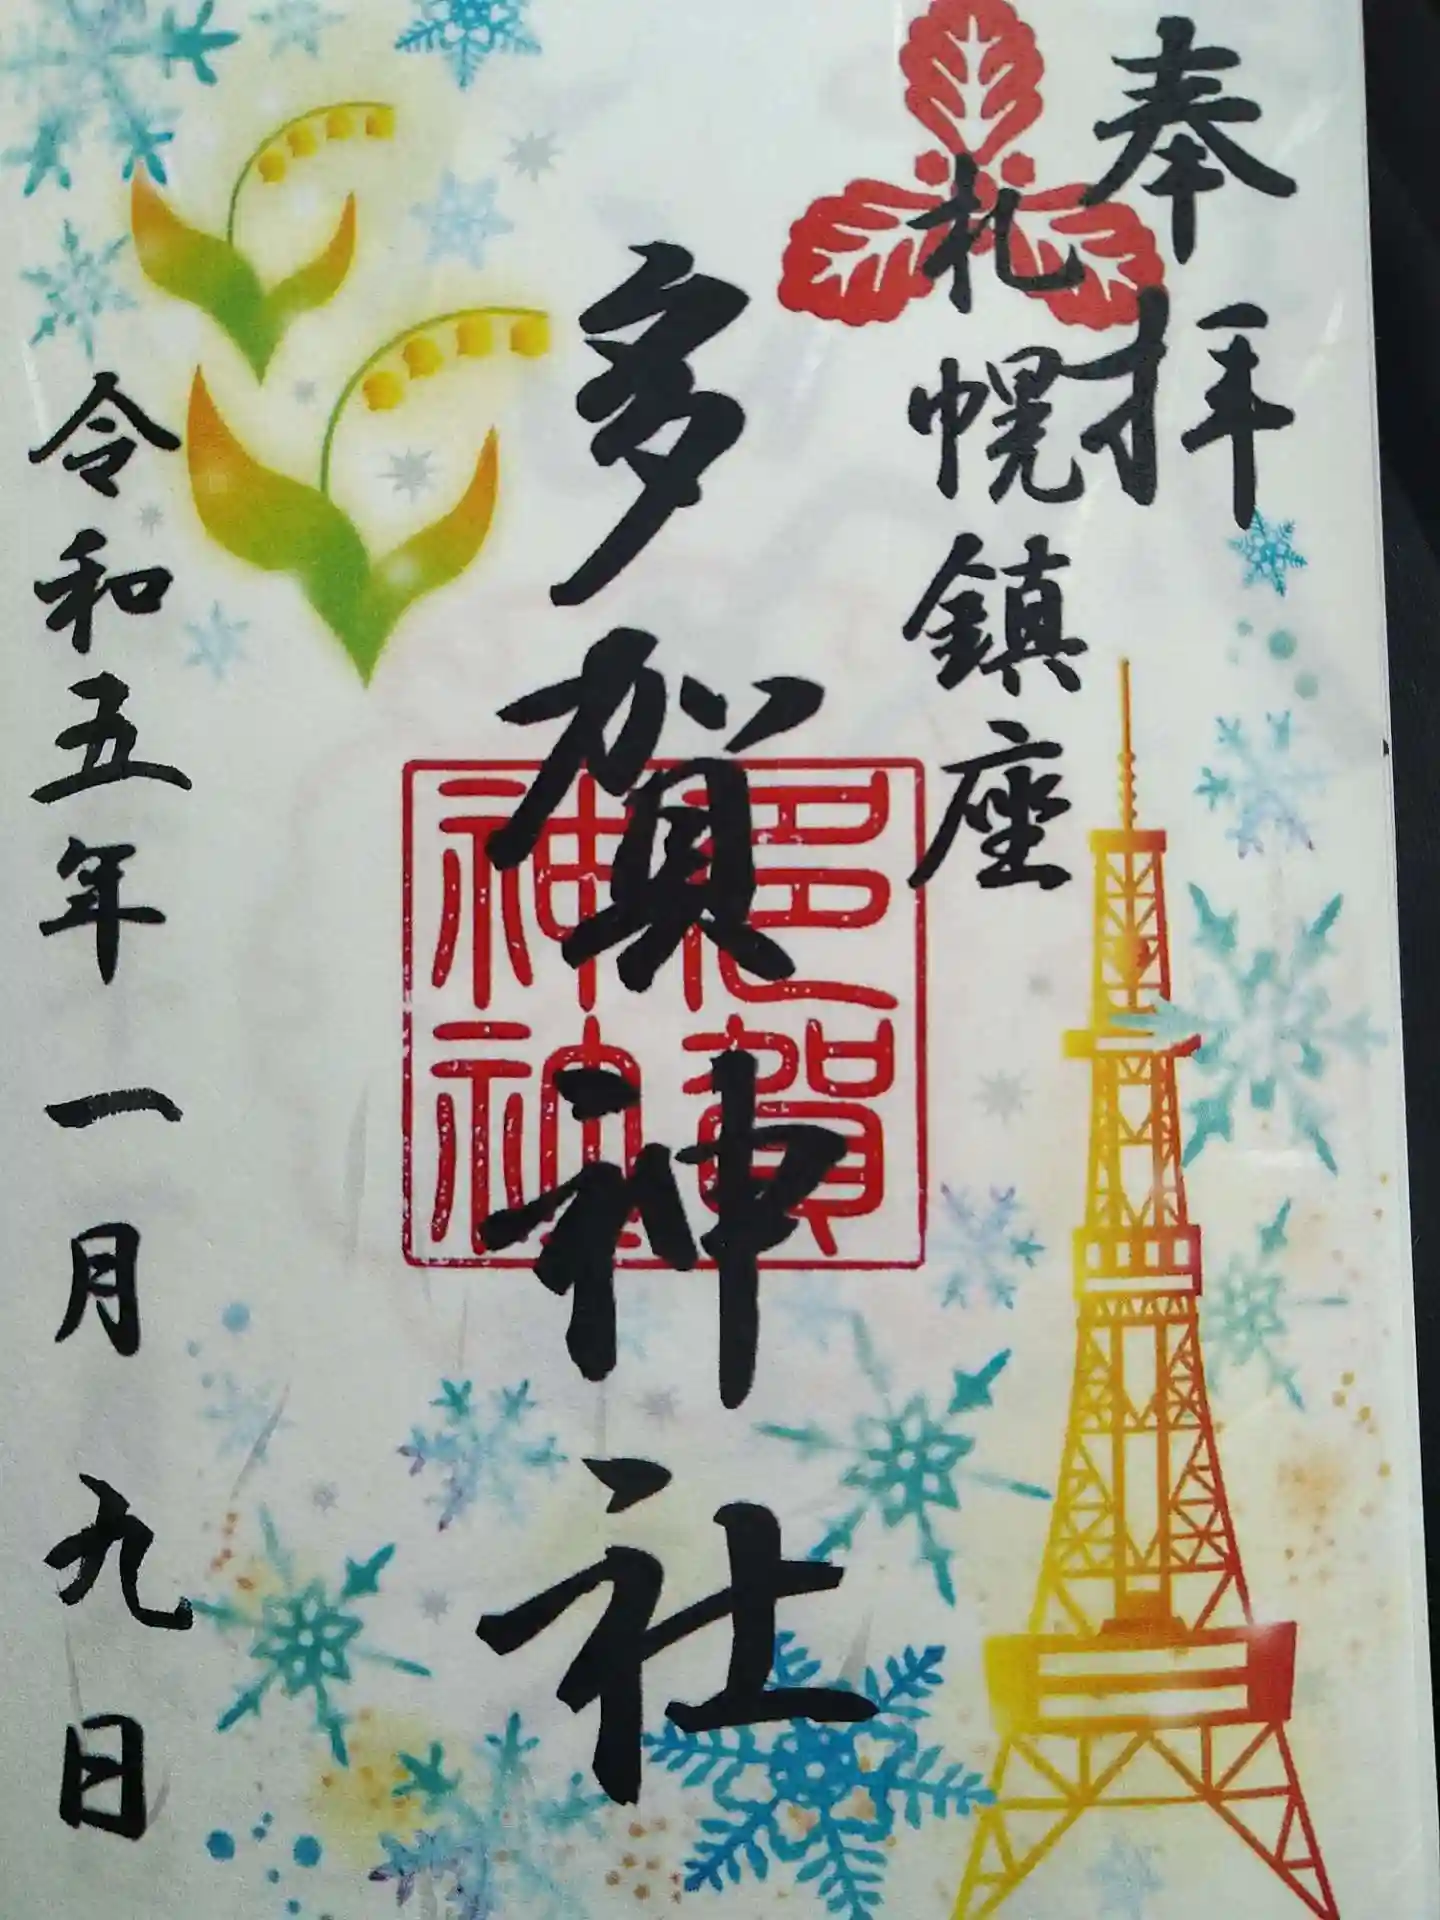 奉拝
札幌鎮座
多賀神社
多賀神社
令和五年一月九日